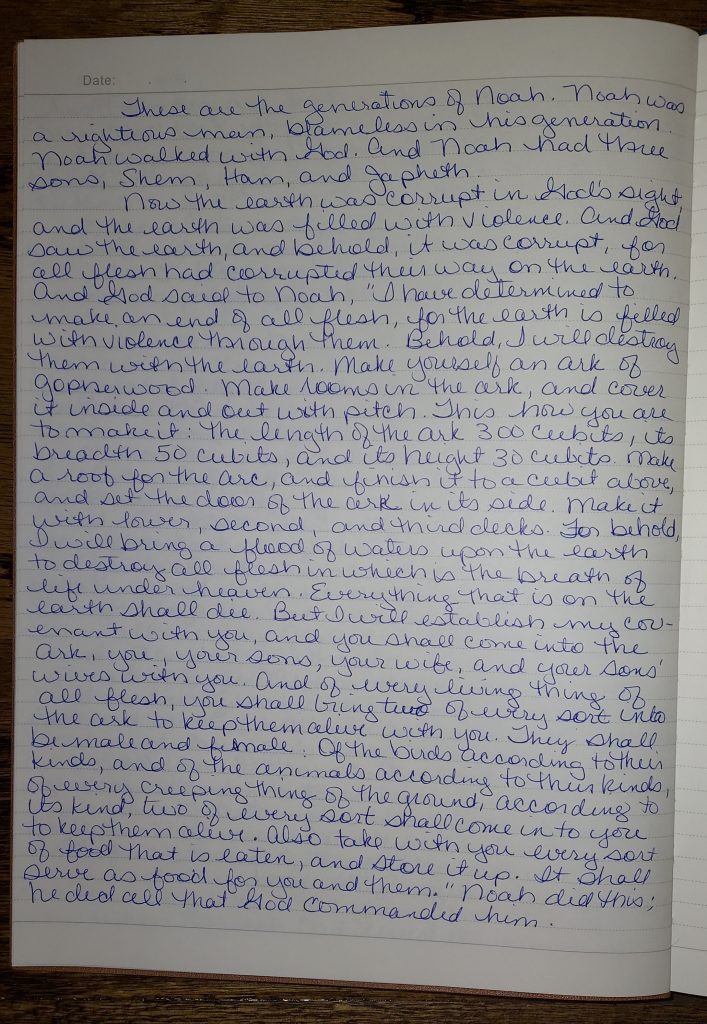 Date:
These are the generations of Noah. Noah was
a rightious man, blameless in his generation.
Noah walked with God. And Noah had three
sons, Shem, Ham, and Japheth.
Now the earth was corrupt in God's sight,
and the earth was filled with violence. And God
saw the earth, and behold, it was corrupt, for
all flesh had corrupted their way on the earth.
And God said to Noah, "I have determined to
make an end of all flesh, for the earth is filled
with violence through them. Behold, I will destroy
them with the earth. Make yourself an ark of
gopherwood. Make rooms in the ark, and cover
it inside and out with pitch. This how you are
to make it: the length of the ark 300 cubits, its
breadth 50 cubits, and its height 30 cubits. Make
a roof for the arc, and finish it to a cubit above,
and set the door of the ark in its side. Make it
with lower, second, and third decks. For behold,
I will bring a flood of waters upon the earth
to destroy all flesh in which is the breath of
life under heaven. Everything that is on the
earth shall die. But I will establish my cov-
enant with you, and you shall come into the
ark, you, your sons, your wife, and your sons'
wives with you. And of every living thing of
all flesh, you shall bring two of every sort into
the ark to keep them alive with you. They shall
be male and female. Of the birds according to their
kinds, and of the animals according to their kinds,
of every creeping thing of the ground, according to
its kind, two of every sort shall come in to you
to keep them alive. Also take with you every sort
of food that is eaten, and store it up. It shall
serve as food for you and them." Noah did this;
he did all that God commanded him.